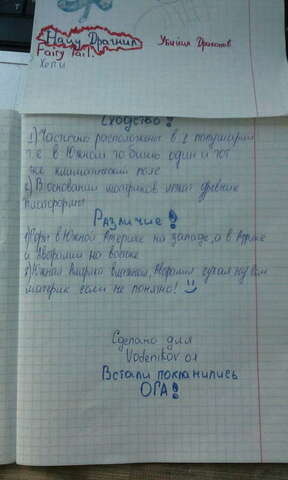 Нацу Драгнил
Убийца Драконов
Fairy Tail.
Хэппи
Сходство?
1) Частично расположены в 2 полушарии
т.е в Южном то бишь один и тот
же климатический пояс
2) В основании материков лежат древние
платформы
Различие!
1) Горы в Южной Америке на западе, а в Африке
и Австралии на востоке
2) Южная Америка влажная, Австралия сухая
материк если не понятно!
Сделано для
Vodenikov 01
Встали поклонились
ОГА!